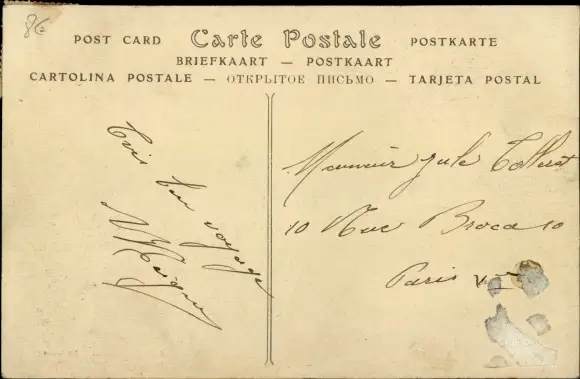 86
POST CARD Carte Postale POSTKARTE
BRIEFKAART — POSTKAART
CARTOLINA POSTALE — ОТКРЫТОЕ ПИСЬМО — TARJETA POSTAL
Très bon voyage
Monsieur Jule
10 Rue Broca 10
Paris